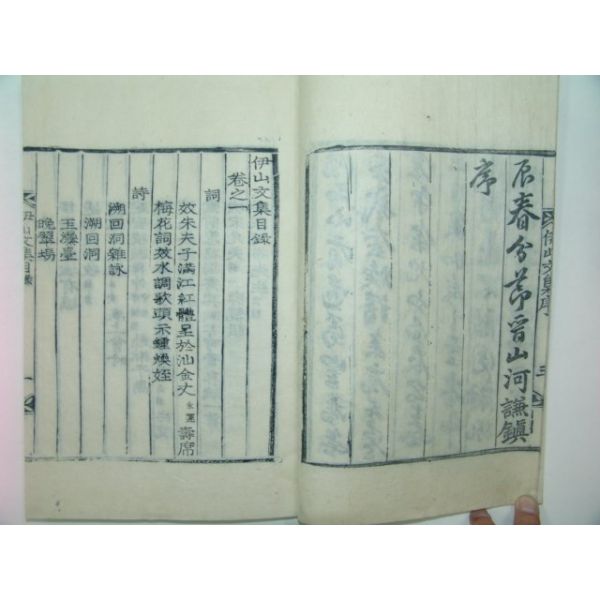 辰春分節晉山河謙鎭
序
伊山文集序
三
伊山文集目錄
卷之一
詞
效朱夫子滿江紅體呈於汕金丈壽席
梅花詞效水調歌頭示鍾煥姪
詩
溯回洞雜詠
溯回洞
玉藻臺
晩翠塢
伊山文集目錄
一